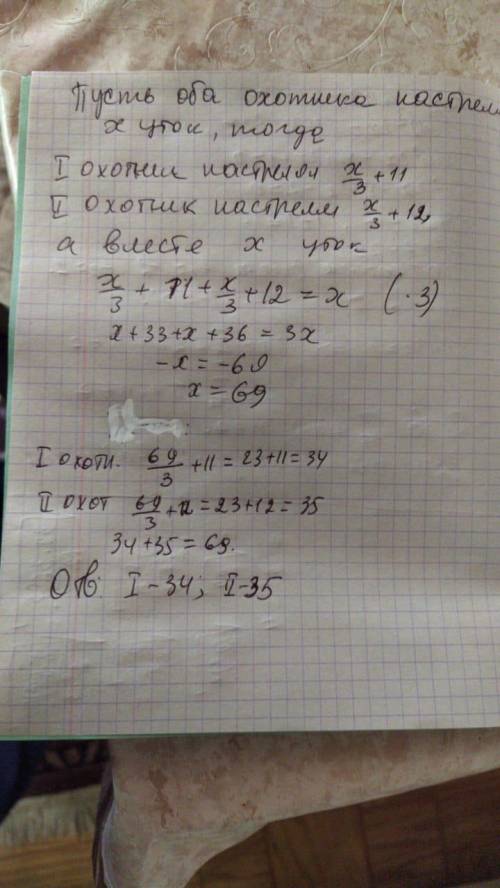 Пусть оба охотника настрелял
x уток, тогда
I охотник настрелял x/3 + 11
II охотник настрелял x/3 + 12,
а вместе x уток
x/3 + 11 + x/3 + 12 = x (·3)
x + 33 + x + 36 = 3x
-x = -69
x = 69
I охотн. 69/3 + 11 = 23 + 11 = 34
II охот 69/3 + 12 = 23 + 12 = 35
34 + 35 = 69.
Отв: I - 34; II - 35